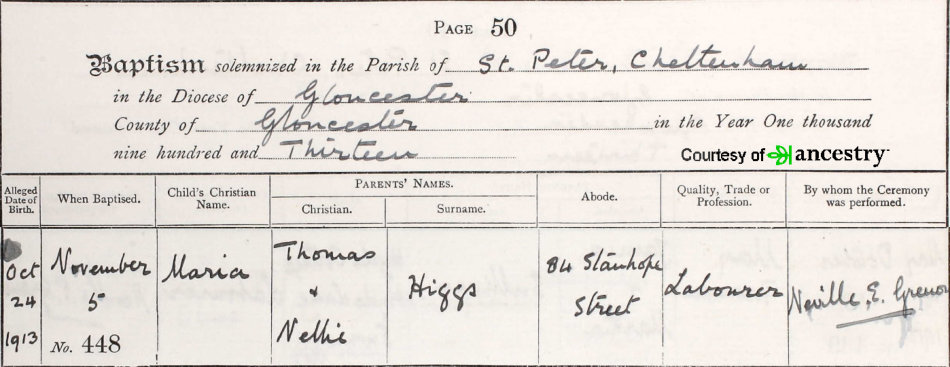 PAGE 50
Baptism solemnized in the Parish of St. Peter, Cheltenham
in the Diocese of Gloucester
County of Gloucester in the Year One thousand
nine hundred and Thirteen
Courtesy of ancestry
Alleged Date of Birth.
When Baptised.
Child's Christian Name.
PARENTS' NAMES.
Christian.
Surname.
Abode.
Quality, Trade or Profession.
By whom the Ceremony was performed.
Oct
24
1913
November
5
No. 448
Maria
Thomas
&
Nellie
Higgs
84 Stanhope
Street
Labourer
Neville. E.